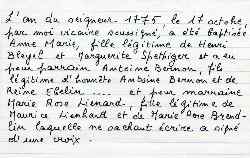 L'an du seigneur 1775, le 17 octobre
par moi vicaire soussigné, a été baptisée
Anne Marie, fille légitime de Henri
Bleyel et Marguerite Spethiger et a eu
pour parrain Antoine Bernon, fils
légitime d'honnête Antoine Bernon et de
Reine Edelin .... et pour marraine
Marie Rose Lienard, fille légitime de
Maurice Lienhard et de Marie Rose Brend-
lin laquelle ne sachant écrire, a signé
d'une croix.